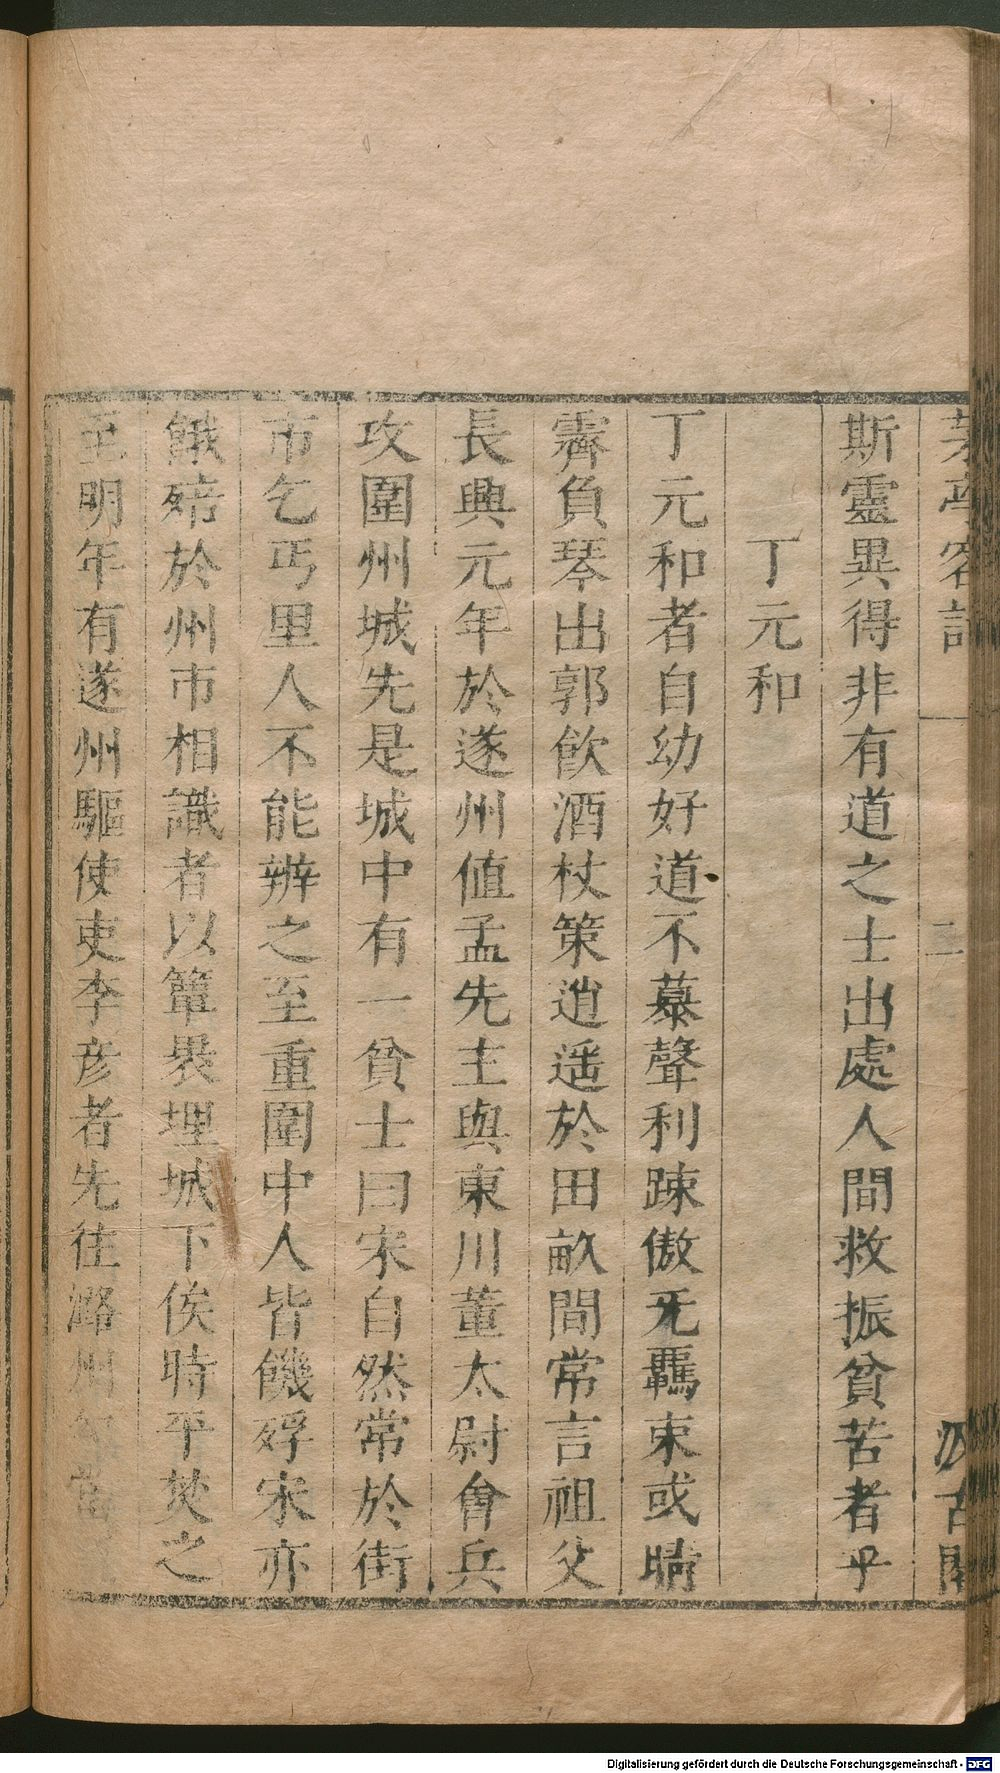 茅亭客話
二
汲古閣
斯靈異得非有道之士出處人間救振貧苦者乎
丁元和
丁元和者自幼好道不慕聲利疎傲无羈束或晴
霽負琴出郭飲酒杖策逍遥於田畝間常言祖父
長興元年於遂州值孟先主與東川董太尉會兵
攻圍州城先是城中有一貧士曰宋自然常於街
市乞丐里人不能辨之至重圍中人皆饑殍宋亦
餓殍於州市相識者以簞裝埋城下俟時平焚之
至明年有遂州驅使吏李彦者先往潞州勾當
Digitalisierung gefördert durch die Deutsche Forschungsgemeinschaft - DFG